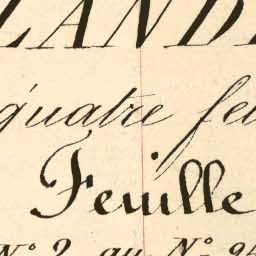 LAND
quatre fe
Feuille
N° 2 au N° 9